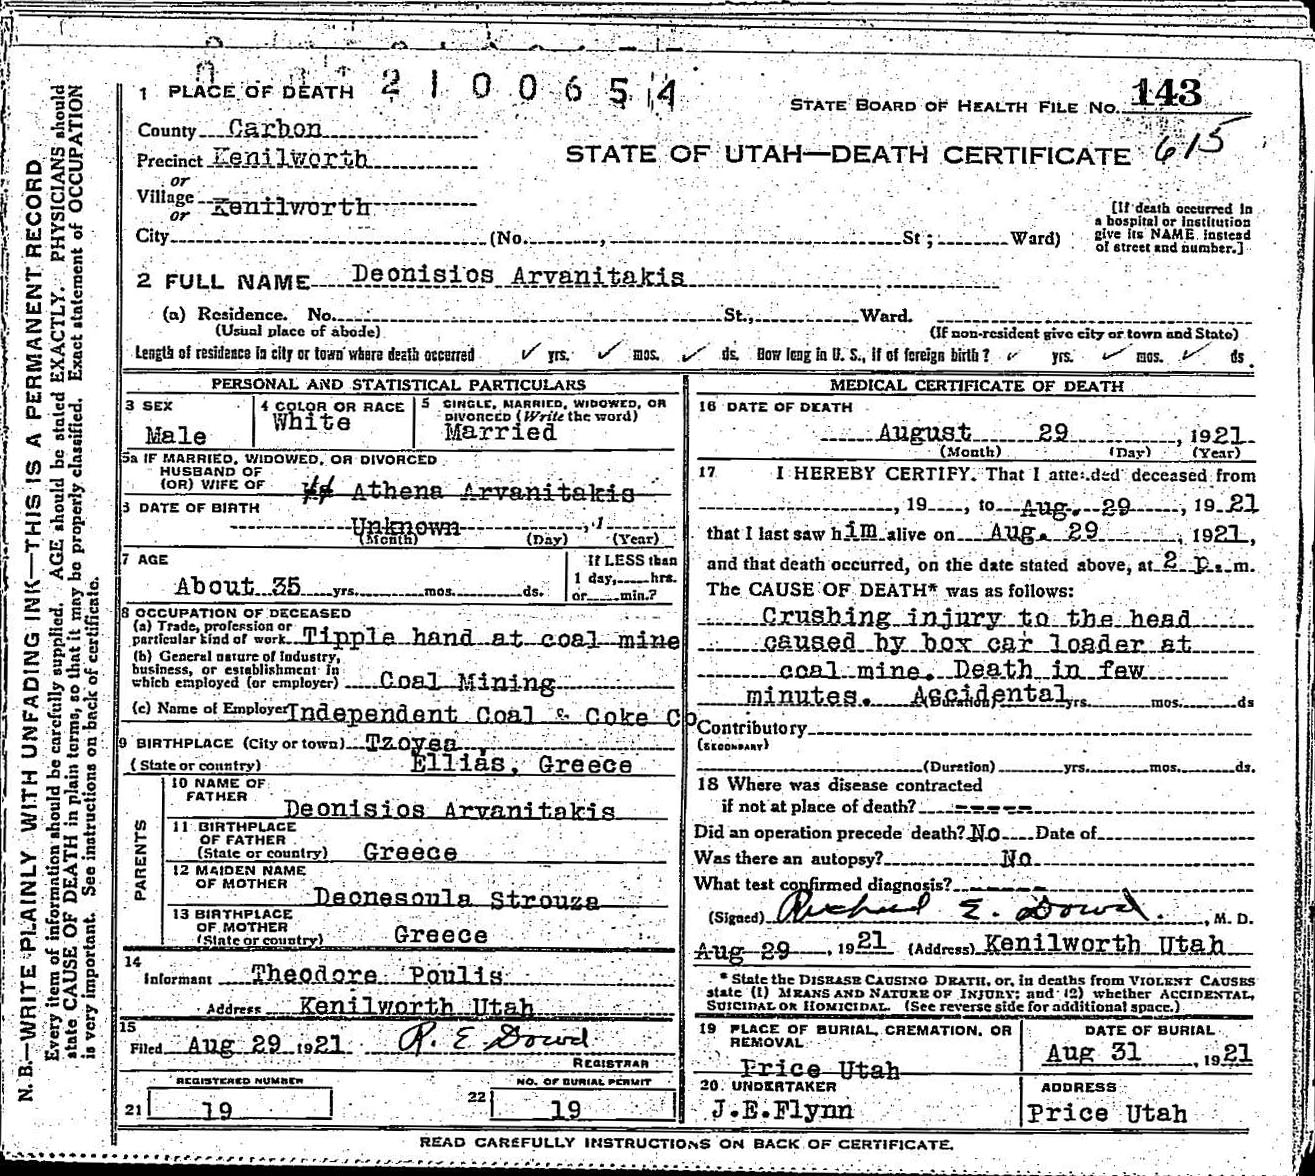 2100654
1 PLACE OF DEATH
STATE BOARD OF HEALTH FILE No. 143
615
County Carbon
STATE OF UTAH—DEATH CERTIFICATE
Precinct Kenilworth
or
Village Kenilworth
or
City (No. , St ; Ward)
[If death occurred in
a hospital or institution
give its NAME instead
of street and number.]
2 FULL NAME Deonisios Arvanitakis
(a) Residence. No. St., Ward.
(Usual place of abode)
(If non-resident give city or town and State)
Length of residence in city or town where death occurred ✓ yrs. ✓ mos. ✓ ds. How long in U. S., if of foreign birth? ✓ yrs. ✓ mos. ✓ ds.
PERSONAL AND STATISTICAL PARTICULARS
3 SEX
Male
4 COLOR OR RACE
White
5 SINGLE, MARRIED, WIDOWED, OR
DIVORCED (Write the word)
Married
5a IF MARRIED, WIDOWED, OR DIVORCED
HUSBAND OF
(OR) WIFE OF Athena Arvanitakis
6 DATE OF BIRTH
Unknown , 1
(Month) (Day) (Year)
7 AGE
About 35 yrs. mos. ds.
If LESS than
1 day, hrs.
or min.?
8 OCCUPATION OF DECEASED
(a) Trade, profession or
particular kind of work Tipple hand at coal mine
(b) General nature of industry,
business, or establishment in
which employed (or employer) Coal Mining
(c) Name of Employer Independent Coal & Coke Co
9 BIRTHPLACE (City or town) Tzoyea ,
(State or country) Ellias, Greece
PARENTS
10 NAME OF
FATHER
Deonisios Arvanitakis
11 BIRTHPLACE
OF FATHER
(State or country) Greece
12 MAIDEN NAME
OF MOTHER
Deonesoula Strouza
13 BIRTHPLACE
OF MOTHER
(State or country) Greece
14
Informant Theodore Poulis
Address Kenilworth Utah
15
Filed Aug 29 1921 R. E. Dowd
REGISTRAR
REGISTERED NUMBER
21 19
NO. OF BURIAL PERMIT
22 19
MEDICAL CERTIFICATE OF DEATH
16 DATE OF DEATH
August 29 , 1921
(Month) (Day) (Year)
17 I HEREBY CERTIFY. That I attended deceased from
, 19 , to Aug. 29 , 1921
that I last saw him alive on Aug. 29 , 1921,
and that death occurred, on the date stated above, at 2 p. m.
The CAUSE OF DEATH* was as follows:
Crushing injury to the head
caused by box car loader at
coal mine. Death in few
minutes. Accidental
(Duration) yrs. mos. ds
Contributory
(SECONDARY)
(Duration) yrs. mos. ds.
18 Where was disease contracted
if not at place of death? -----
Did an operation precede death? No Date of
Was there an autopsy? No
What test confirmed diagnosis? -----
(Signed) Richard E. Dowd. , M. D.
Aug 29 , 1921 (Address) Kenilworth Utah
* State the DISEASE CAUSING DEATH, or, in deaths from VIOLENT CAUSES
state (1) MEANS AND NATURE OF INJURY; and (2) whether ACCIDENTAL,
SUICIDAL OR HOMICIDAL. (See reverse side for additional space.)
19 PLACE OF BURIAL, CREMATION, OR
REMOVAL
Price Utah
DATE OF BURIAL
Aug 31 , 1921
20 UNDERTAKER
J.E.Flynn
ADDRESS
Price Utah
READ CAREFULLY INSTRUCTIONS ON BACK OF CERTIFICATE.
N. B.—WRITE PLAINLY WITH UNFADING INK—THIS IS A PERMANENT RECORD
Every item of information should be carefully supplied. AGE should be stated EXACTLY. PHYSICIANS should
state CAUSE OF DEATH in plain terms, so that it may be properly classified. Exact statement of OCCUPATION
is very important. See instructions on back of certificate.